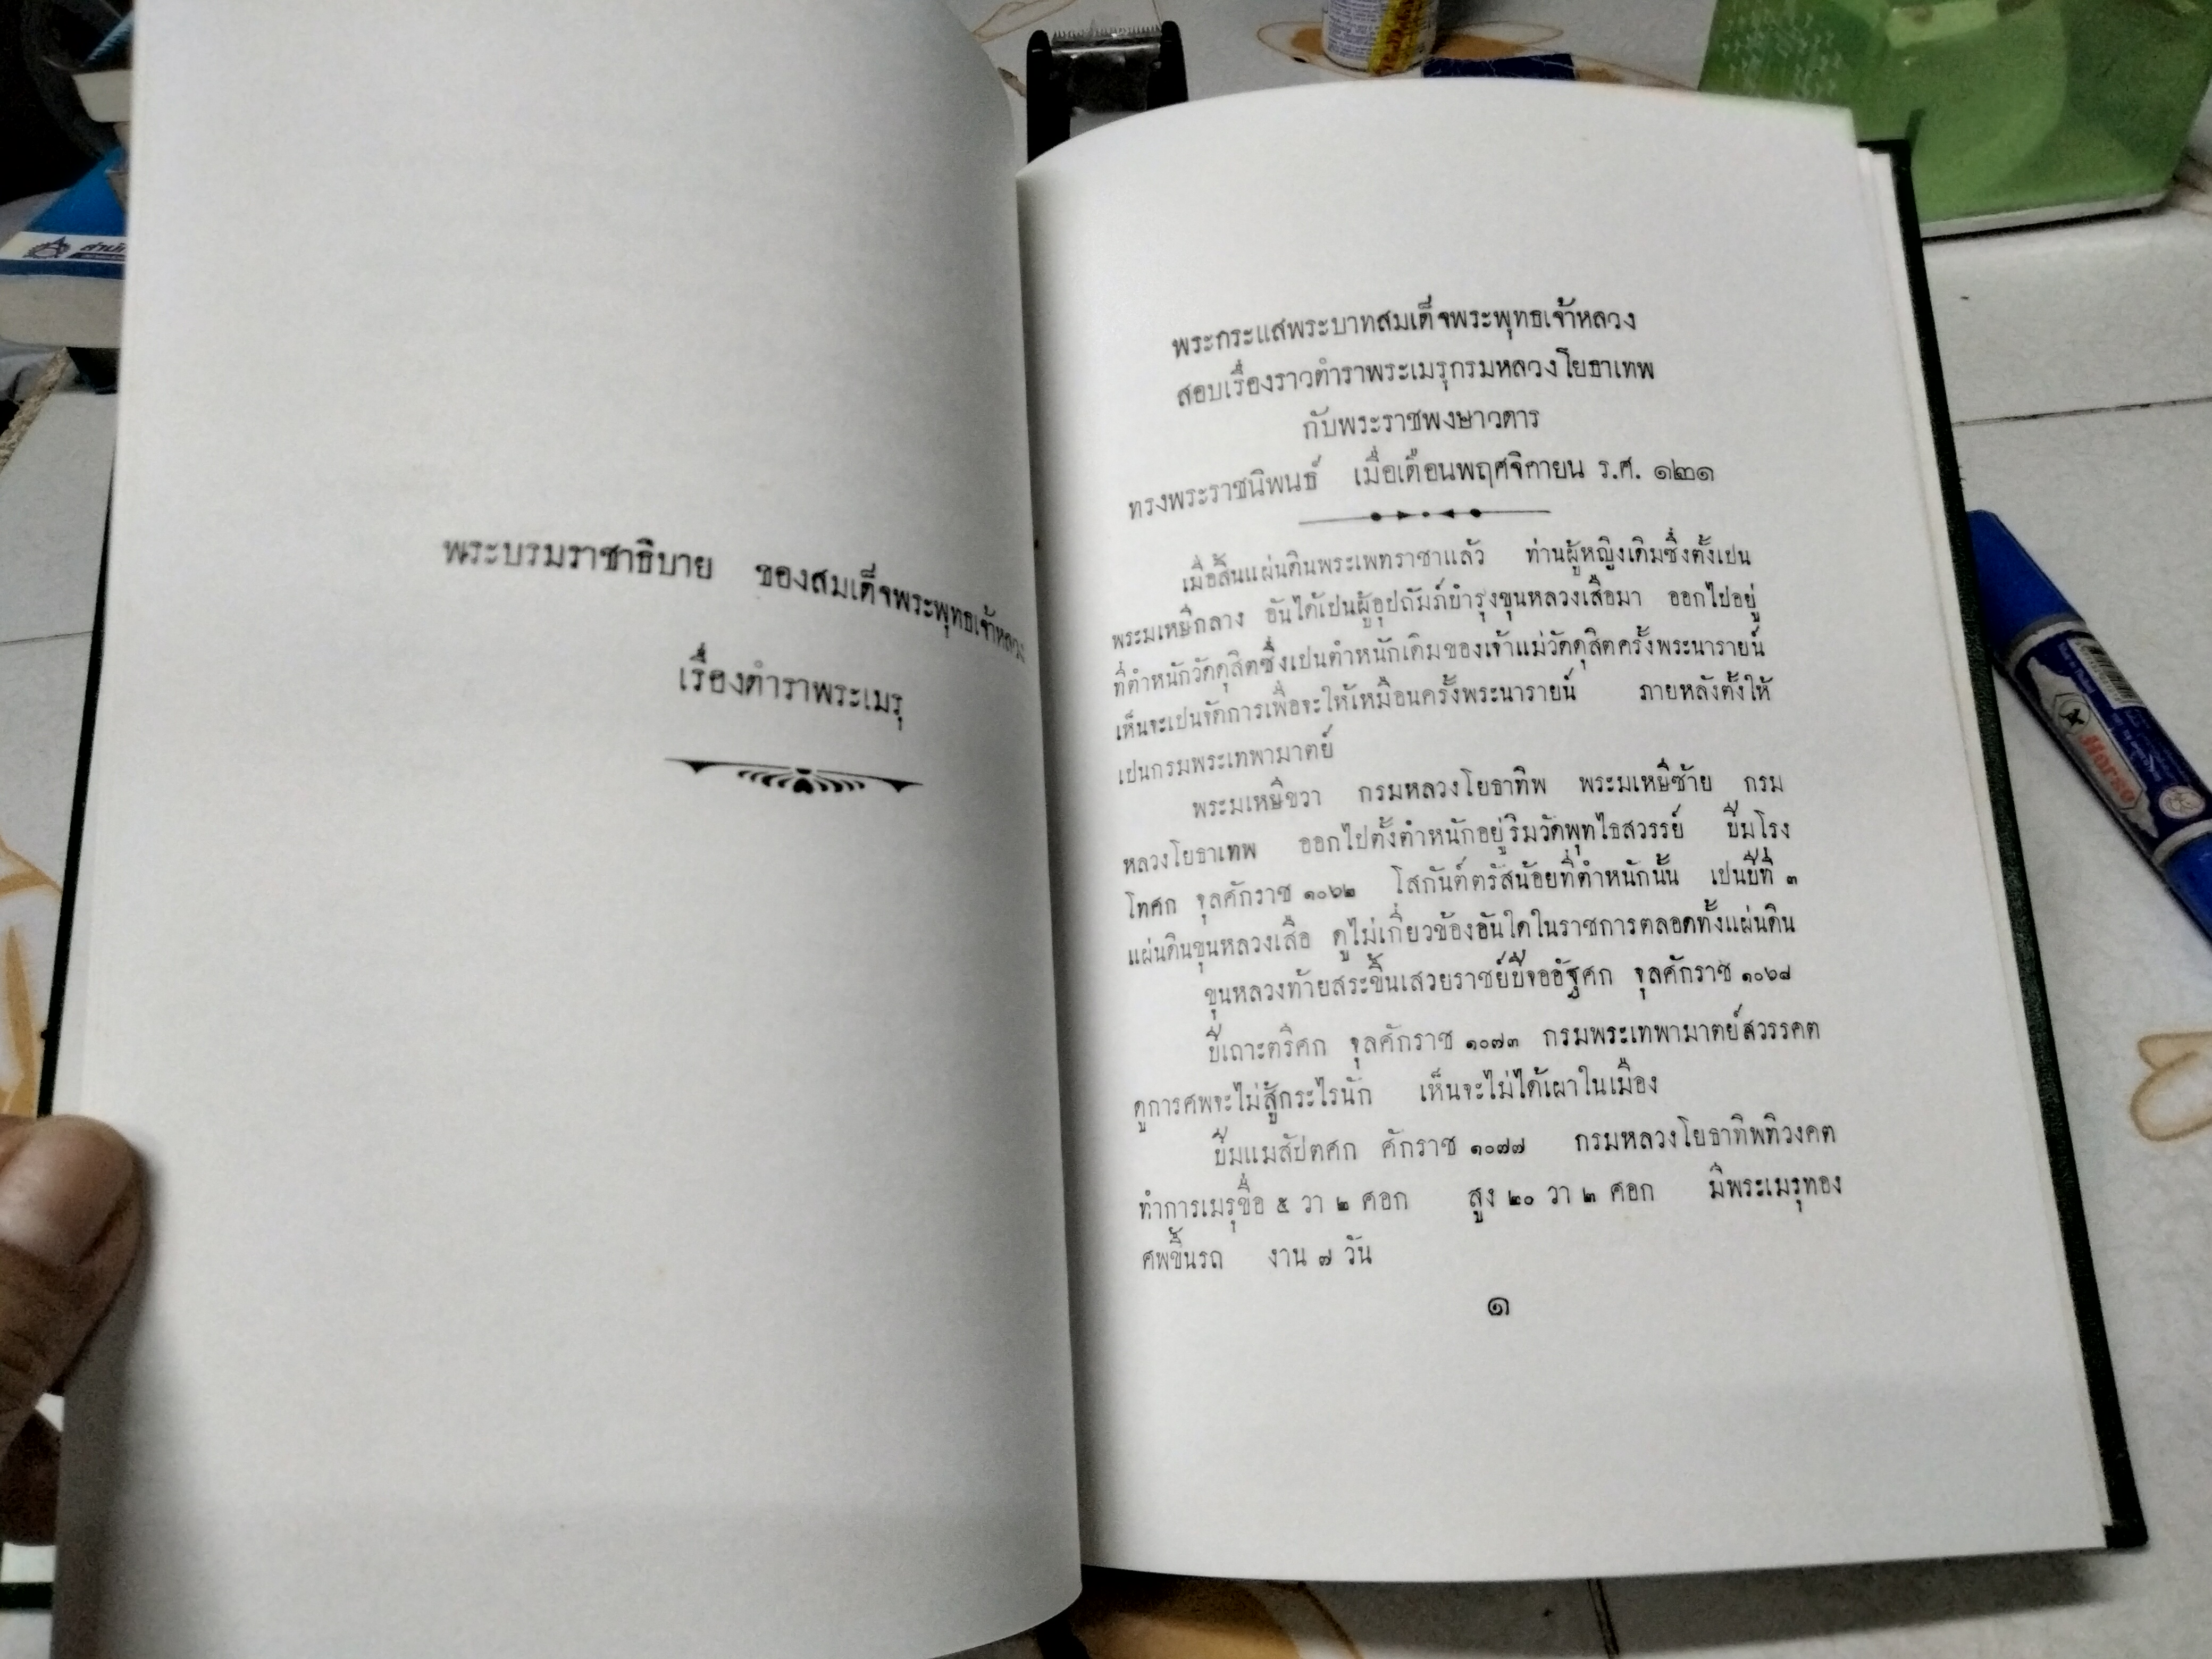 พระบรมราชาธิบาย ของสมเด็จพระพุทธเจ้าหลวง
เรื่องตำราพระเมรุ
พระกระแสพระบาทสมเด็จพระพุทธเจ้าหลวง
สอบเรื่องราวตำราพระเมรุกรมหลวงโยธาเทพ
กับพระราชพงษาวดาร
ทรงพระราชนิพนธ์ เมื่อเดือนพฤศจิกายน ร.ศ. ๑๒๑
เมื่อสิ้นแผ่นดินพระเพทราชาแล้ว ท่านผู้หญิงเดิมซึ่งตั้งเปน
พระมเหษีกลาง อันได้เปนผู้อุปถัมภ์บำรุงขุนหลวงเสือมา ออกไปอยู่
ที่ตำหนักวัดดุสิตซึ่งเปนตำหนักเดิมของเจ้าแม่วัดดุสิตครั้งพระนารายน์
เห็นจะเปนจัดการเพื่อจะให้เหมือนครั้งพระนารายน์ ภายหลังตั้งให้
เปนกรมพระเทพามาตย์
พระมเหษีขวา กรมหลวงโยธาทิพ พระมเหษีซ้าย กรม
หลวงโยธาเทพ ออกไปตั้งตำหนักอยู่ริมวัดพุทไธสวรรย์ ปีมโรง
โทศก จุลศักราช ๑๐๖๒ โสกันต์ตรัสน้อยที่ตำหนักนั้น เปนปีที่ ๓
แผ่นดินขุนหลวงเสือ ดูไม่เกี่ยวข้องอันใดในราชการตลอดทั้งแผ่นดิน
ขุนหลวงท้ายสระขึ้นเสวยราชย์ปีจออัฐศก จุลศักราช ๑๐๖๘
ปีเถาะตรีศก จุลศักราช ๑๐๗๓ กรมพระเทพามาตย์สวรรคต
ดูการศพจะไม่สู้กระไรนัก เห็นจะไม่ได้เผาในเมือง
ปีมแมสัปตศก ศักราช ๑๐๗๗ กรมหลวงโยธาทิพทิวงคต
ทำการเมรุขื่อ ๕ วา ๒ ศอก สูง ๒๐ วา ๒ ศอก มีพระเมรุทอง
ศพขึ้นรถ งาน ๗ วัน
๑
Horse
สำนัก